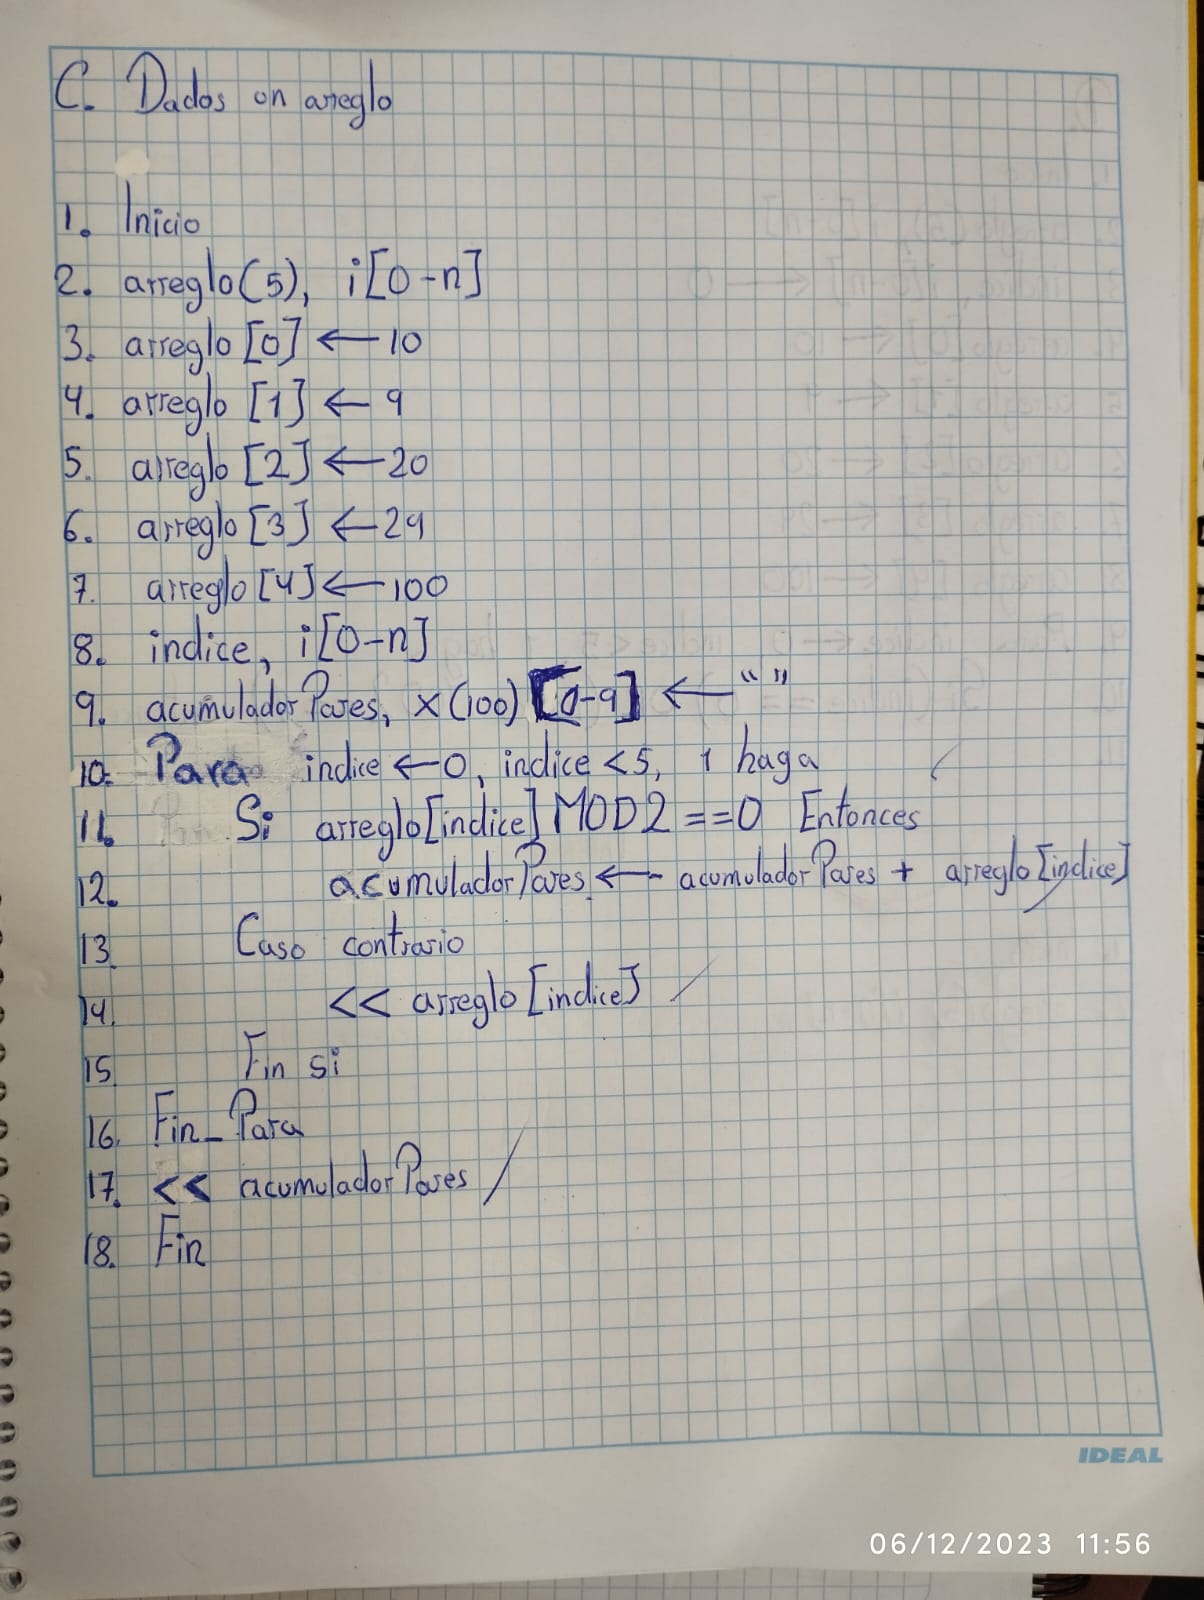 C. Dados un arreglo
1. Inicio
2. arreglo(5), i[0-n]
3. arreglo [0] ← 10
4. arreglo [1] ← 9
5. arreglo [2] ← 20
6. arreglo [3] ← 29
7. arreglo [4] ← 100
8. indice, i[0-n]
9. acumuladorPares, x(100) [0-9] ← “ ”
10. Para indice ← 0, indice < 5, 1 haga
11. Si arreglo[indice] MOD 2 == 0 Entonces
12. acumuladorPares ← acumuladorPares + arreglo[indice]
13. Caso contrario
14. << arreglo[indice]
15. Fin si
16. Fin_Para
17. << acumuladorPares
18. Fin
IDEAL
06/12/2023 11:56